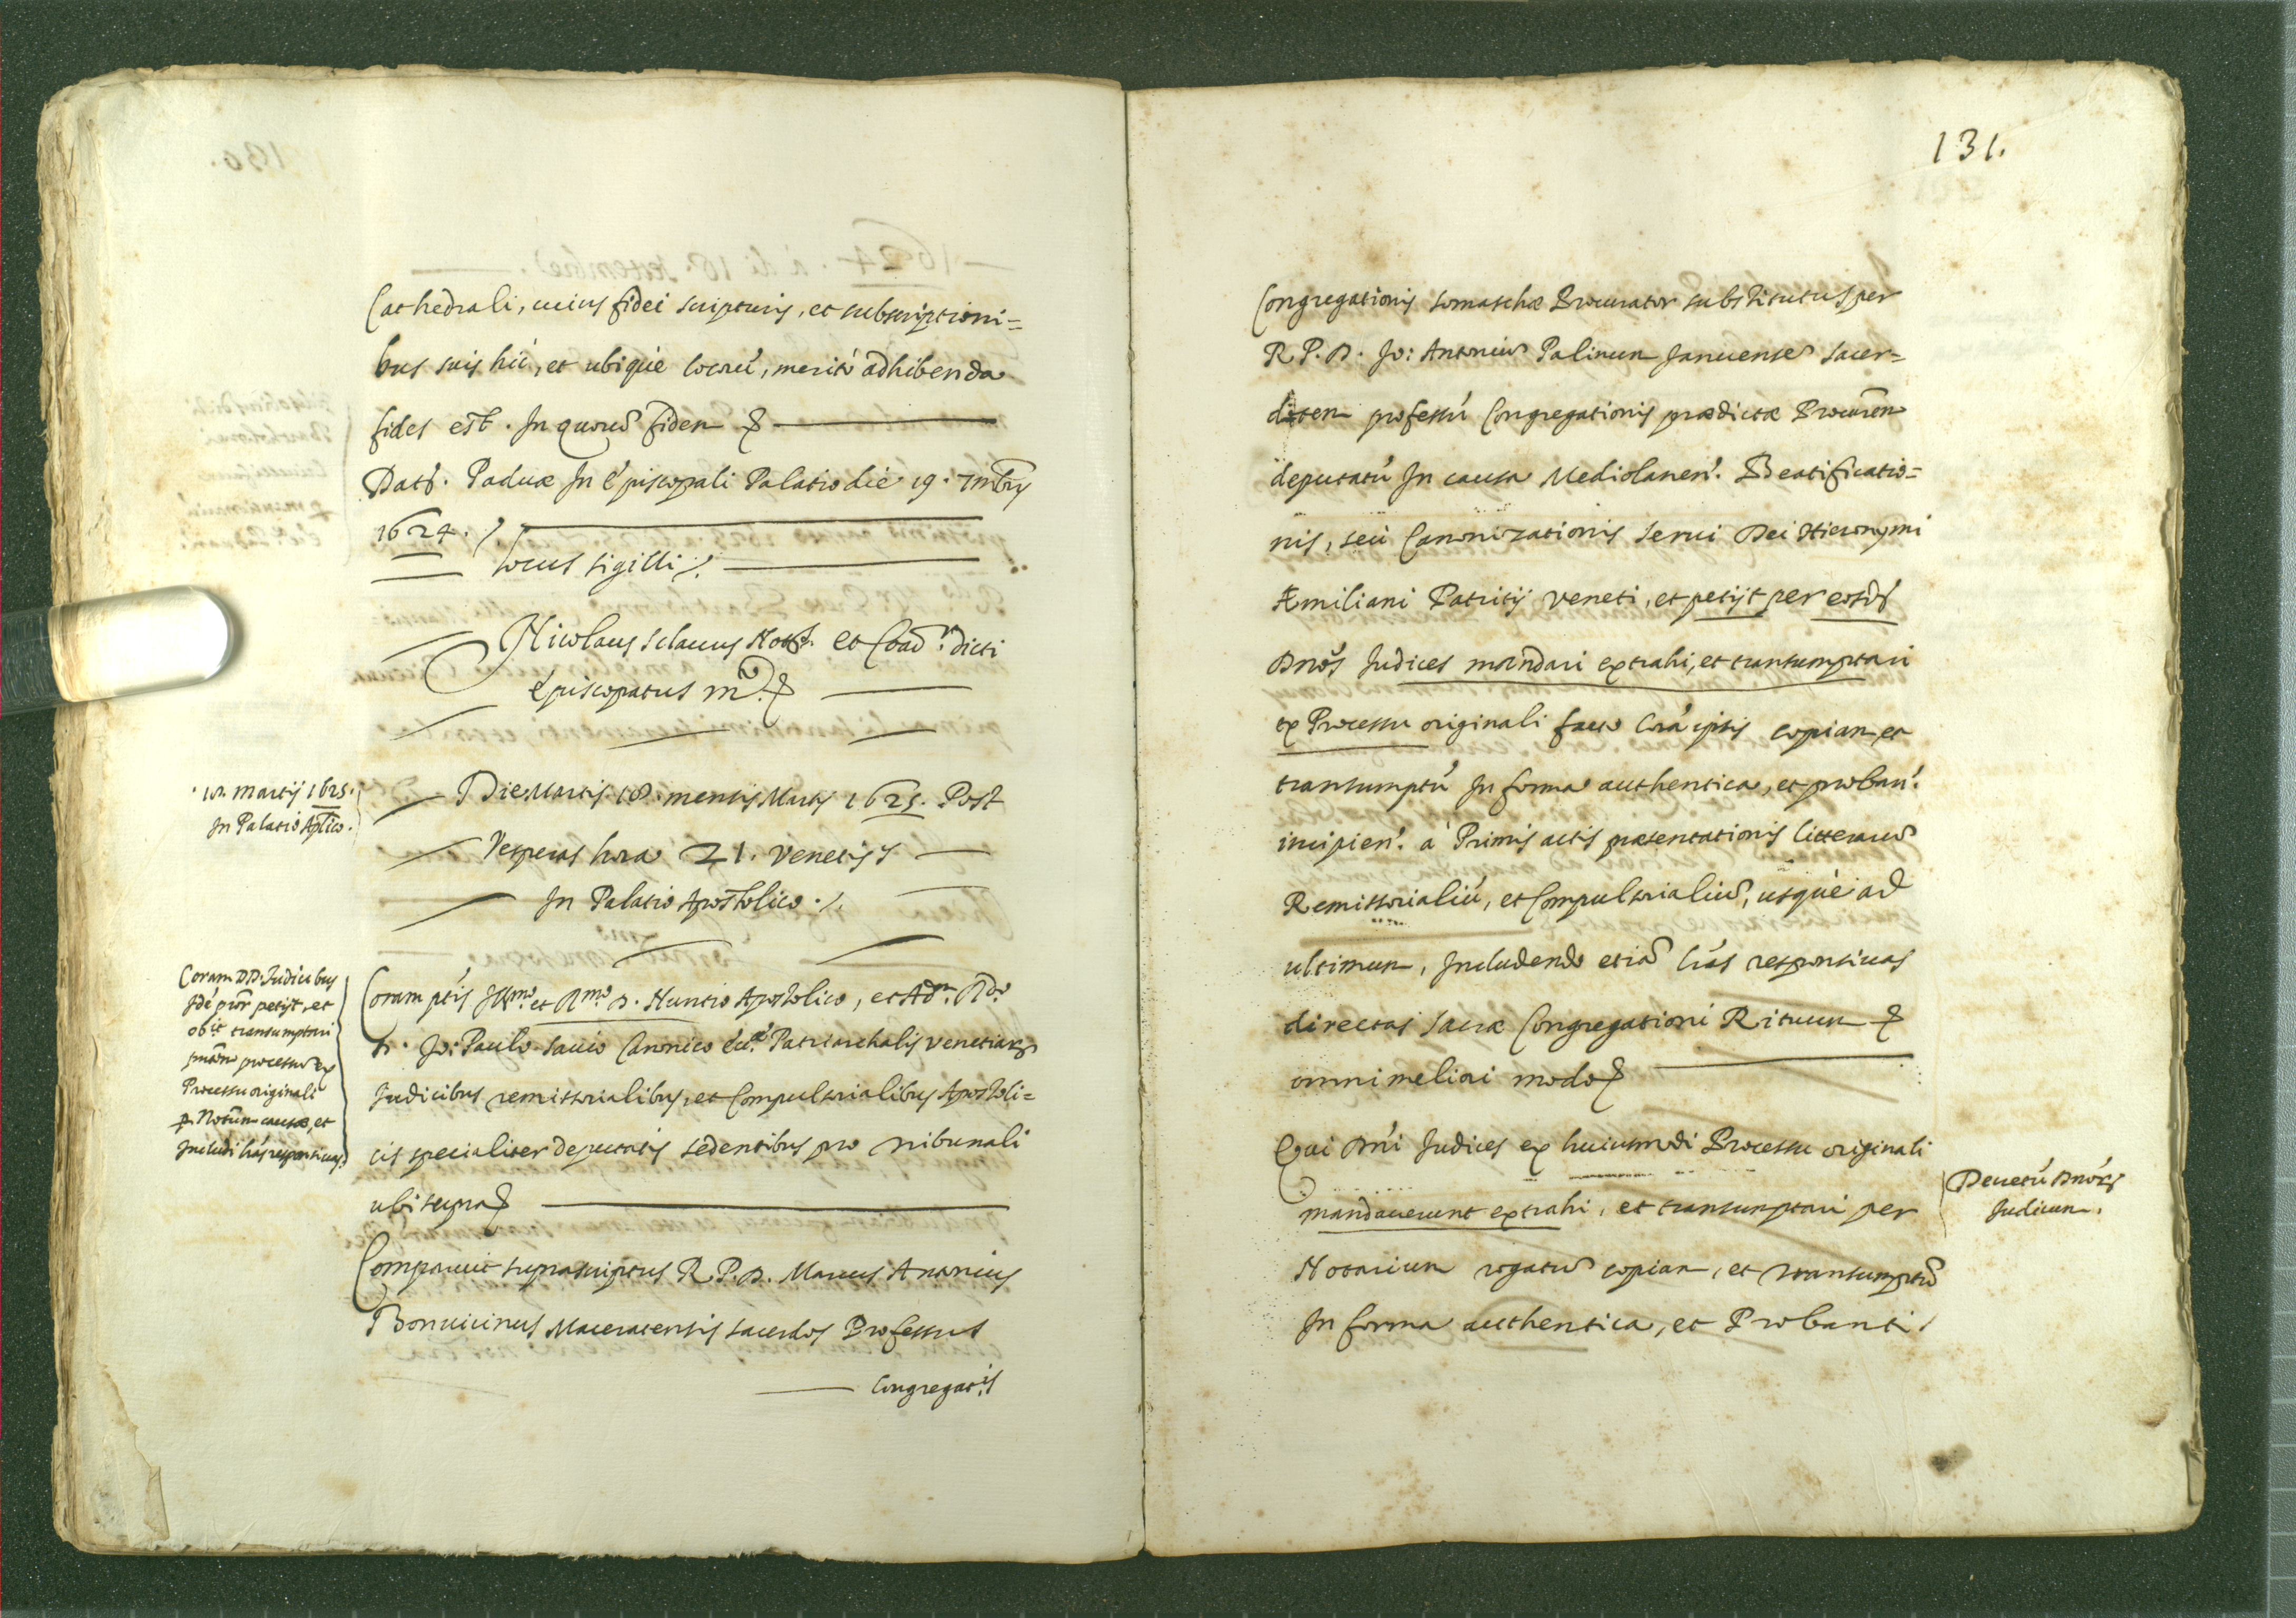 Cathedrali, cuius fidei scripturis, et subscriptioni=
bus suis hic, et ubique locorũ, meritò adhibenda
fides est. In quorũ fidem &
Dat. Paduæ In Episcopali Palatio die 19. 7mbris
1624. /.
Locus sigilli /.
Nicolaus Sclauus Nott. et Coad.r dicti
Episcopatus m.o &
18. Martij 1625.
In Palatio Aplico.
Die Martis 18. mensis Martij 1625. Post
Vesperas hora 21. Venetijs
In Palatio Apostolico ./.
Coram DD. Iudicibus
Idẽ pr̃ petijt, et
obit transumptari
pñtem processũ ex
Processu originali
p Notũm causæ, et
Includi lr̃as responsiuas
Coram ptis Illmo. et Rmo. D. Nuntio Apostolico, et Adm. Rdo.
D. Jo: Paulo Sauio Canonico Ecc.æ Patriarchalis Venetiarũ
Iudicibus remissorialibus, et Compulsorialibus Apostoli=
cis specialiter deputatis sedentibus pro tribunali
ubi supra &
Comparuit suprascriptus R. P. D. Marcus Antonius
Bonuicinus Maceratensis sacerdos Professus
Congregat.is
131.
Congregationis somaschæ Procurator substitutus per
R. P. D. Jo: Antoniũ Palinum Januensẽ sacer=
dotem professũ Congregationis prædictæ Procurẽm
deputatũ In causa Mediolanen. Beatificatio=
nis, seù Canonizationis serui Dei Hieronymi
Æmiliani Patritij veneti, et petijt per eosd.
Dños Iudices mandari extrahi, et transumptari
ex Processu originali facto Corã ipsis copiam, et
transumptũ In forma authentica, et proban.
incipien. à Primis actis præsentationis litterarũ
Remissorialiũ, et Compulsorialiũ, usque ad
ultimum, Includendo etiã lr̃as responsiuas
directas sacræ Congregationi Rituum &
omni meliori modo &
Qui Dñi Iudices ex huiusmodi Processu originali
mandauerunt extrahi, et transumptari per
Notarium rogatũ copiam, et transumptũ
In forma authentica, et Probanti.
Decretũ Dñorũ
Iudicum.